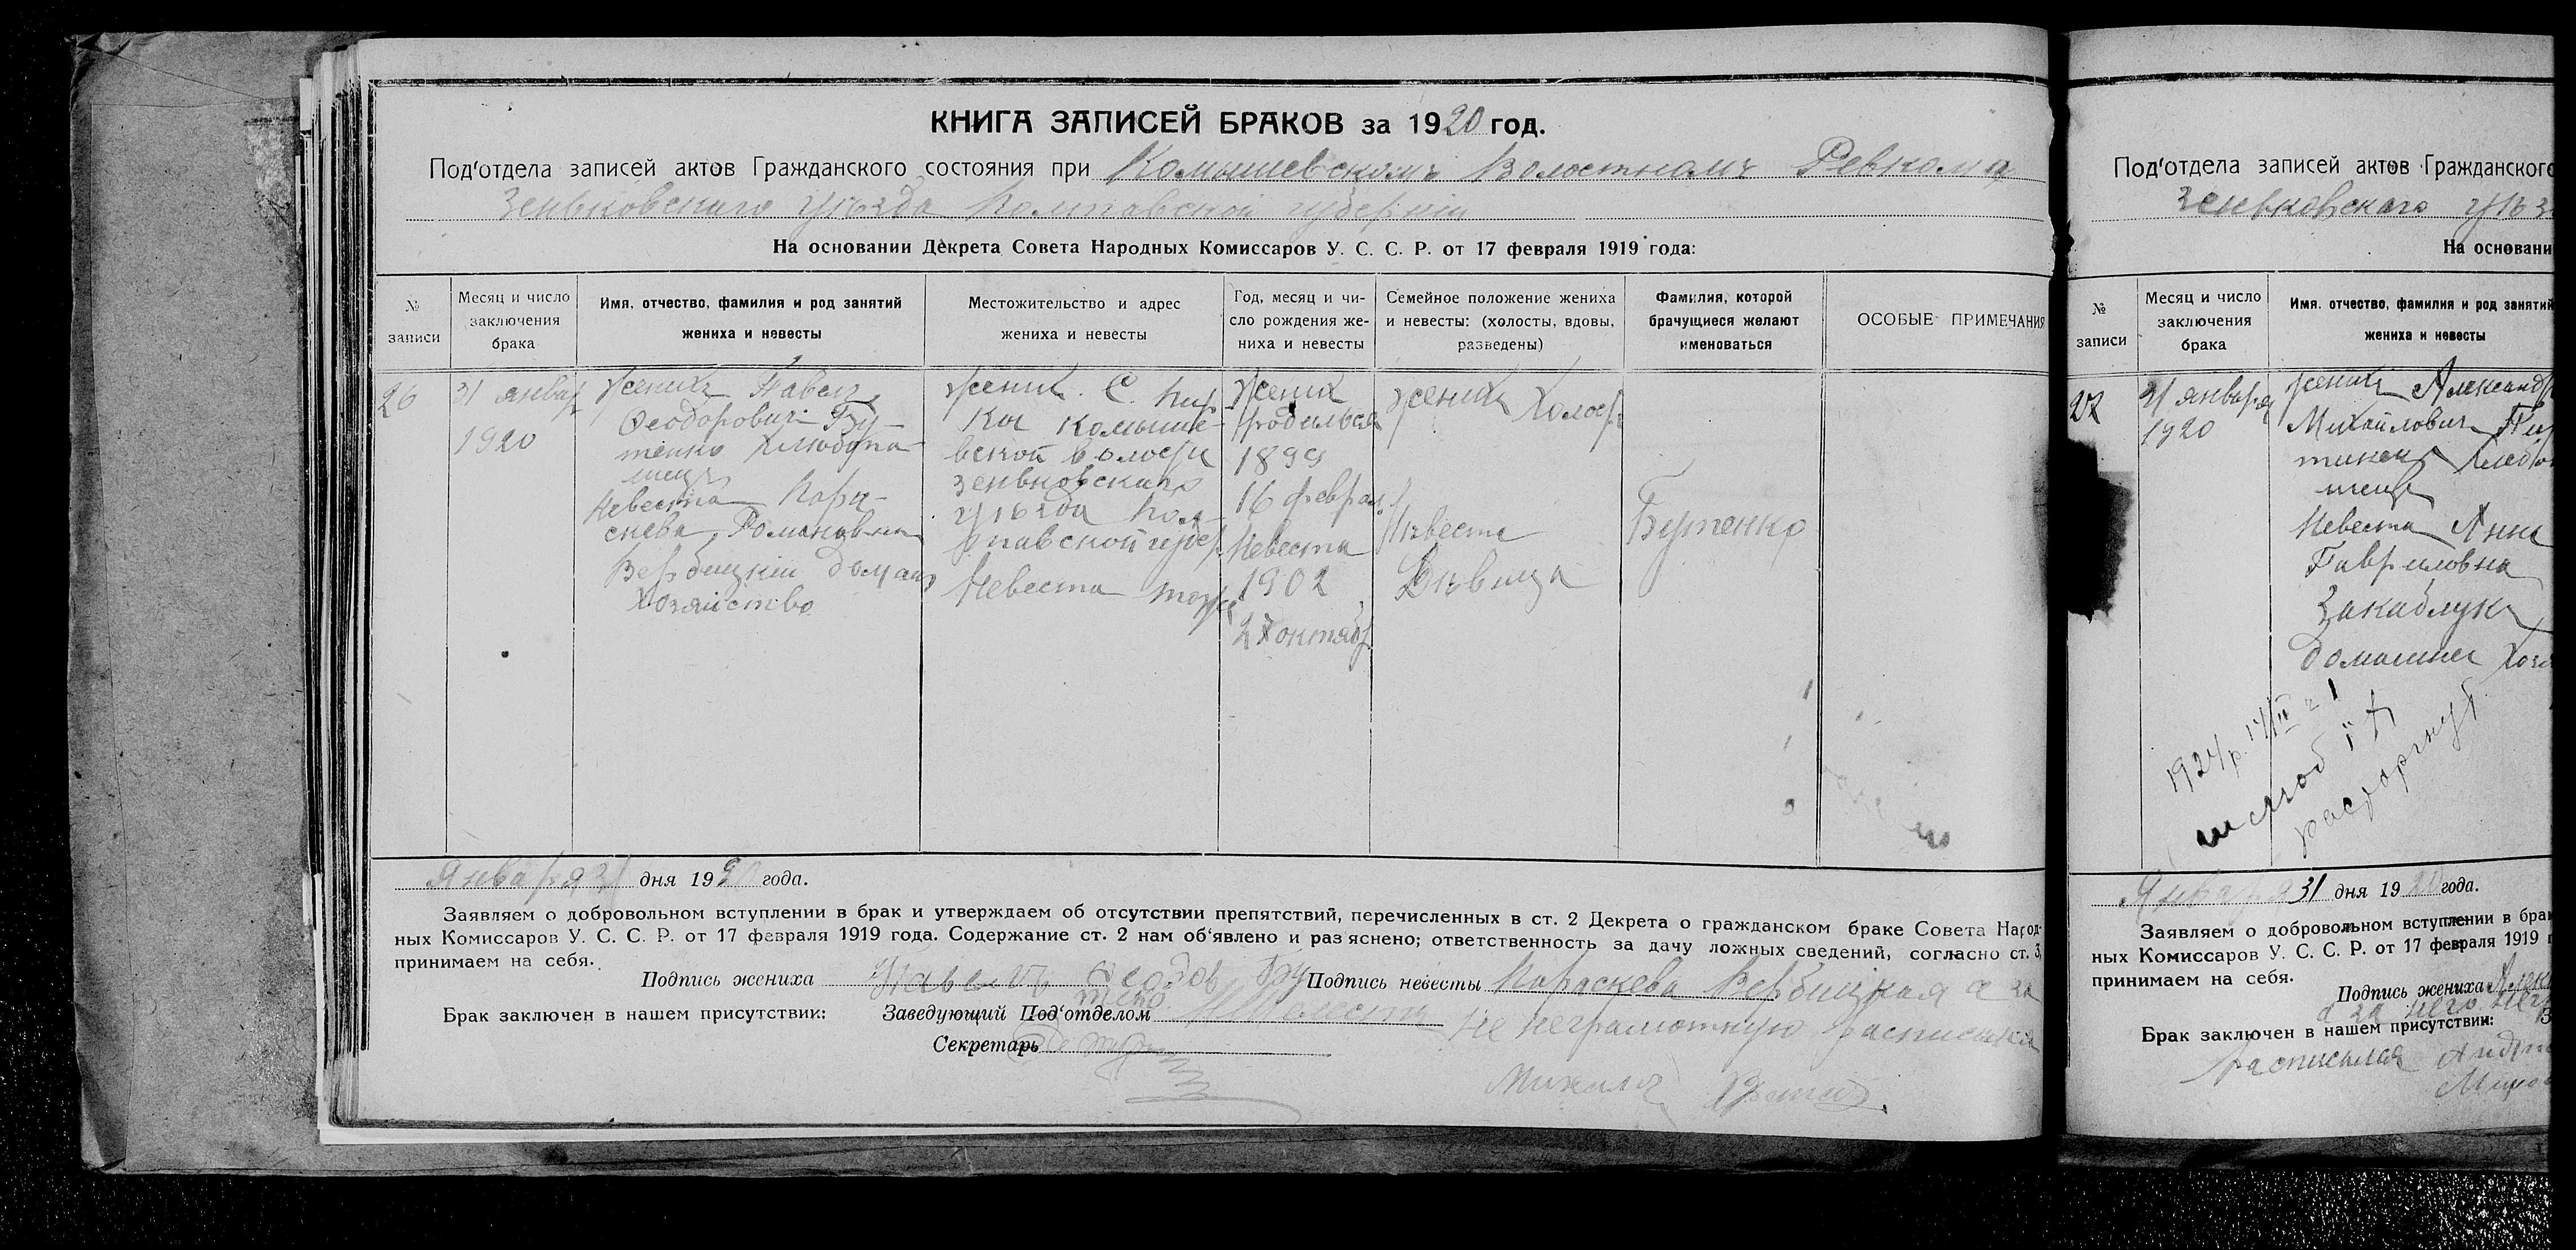 КНИГА ЗАПИСЕЙ БРАКОВ за 1920 год.
Под‘отдела записей актов Гражданского состояния при Комышевскомъ Волостномъ Ревкома
Зеньковского уѣзда Полтавской губернии
На основании Декрета Совета Народных Комиссаров У. С. С. Р. от 17 февраля 1919 года:
№ записи
Месяц и число заключения брака
Имя, отчество, фамилия и род занятий жениха и невесты
Местожительство и адрес жениха и невесты
Год, месяц и чи-
сло рождения же-
ниха и невесты
Семейное положение жениха
и невесты: (холосты, вдовы,
разведены)
Фамилия, которой
брачущиеся желают
именоваться
ОСОБЫЕ ПРИМЕЧАНИЯ
26
31 январ
1920
Жених Павелъ
Феодорович Бу-
тенко Хлебопа-
шецъ
Невеста Пара-
скева Романовна
Вербицкий домаш
хозяйство
жених. С.
Комыше-
вской волости
Зеньковскаго
уѣзда Пол-
тавской губер
Невеста тоже
Жених
родился
1899
16 феврал
Невеста
1902
27 октябр
жених Холост
Невеста
Дѣвица
Бутенко
Января 31 дня 1920 года.
Заявляем о добровольном вступлении в брак и утверждаем об отсутствии препятствий, перечисленных в ст. 2 Декрета о гражданском браке Совета Народ-
ных Комиссаров У. С. С. Р. от 17 февраля 1919 года. Содержание ст. 2 нам об‘явлено и раз яснено; ответственность за дачу ложных сведений, согласно ст. 3,
принимаем на себя.
Подпись жениха Павелъ Феодов Бу
тено
Подпись невесты Параскева Вербицкая а за
не неграмотную расписался
Михаилъ
Брак заключен в нашем присутствии: Заведующий Под‘отделом
Секретарь
Под‘отдела записей актов Гражданского
Зеньковскаго уѣз
На основани
№ записи
Месяц и число
заключения
брака
Имя, отчество, фамилия и род занятий
жениха и невесты
27
31 января
1920
жених Александр
Михайлович
Невеста Анна
Гавриловна
Закаблук
домашнее хозя
1924 р.
расторгнут
Января 31 дня 1920 года.
Заявляем о добровольном вступлении в брак
ных Комиссаров У. С. С. Р. от 17 февраля 1919 г
принимаем на себя.
Подпись жениха Алек
а за него
Брак заключен в нашем присутствии: З
расписался Андр